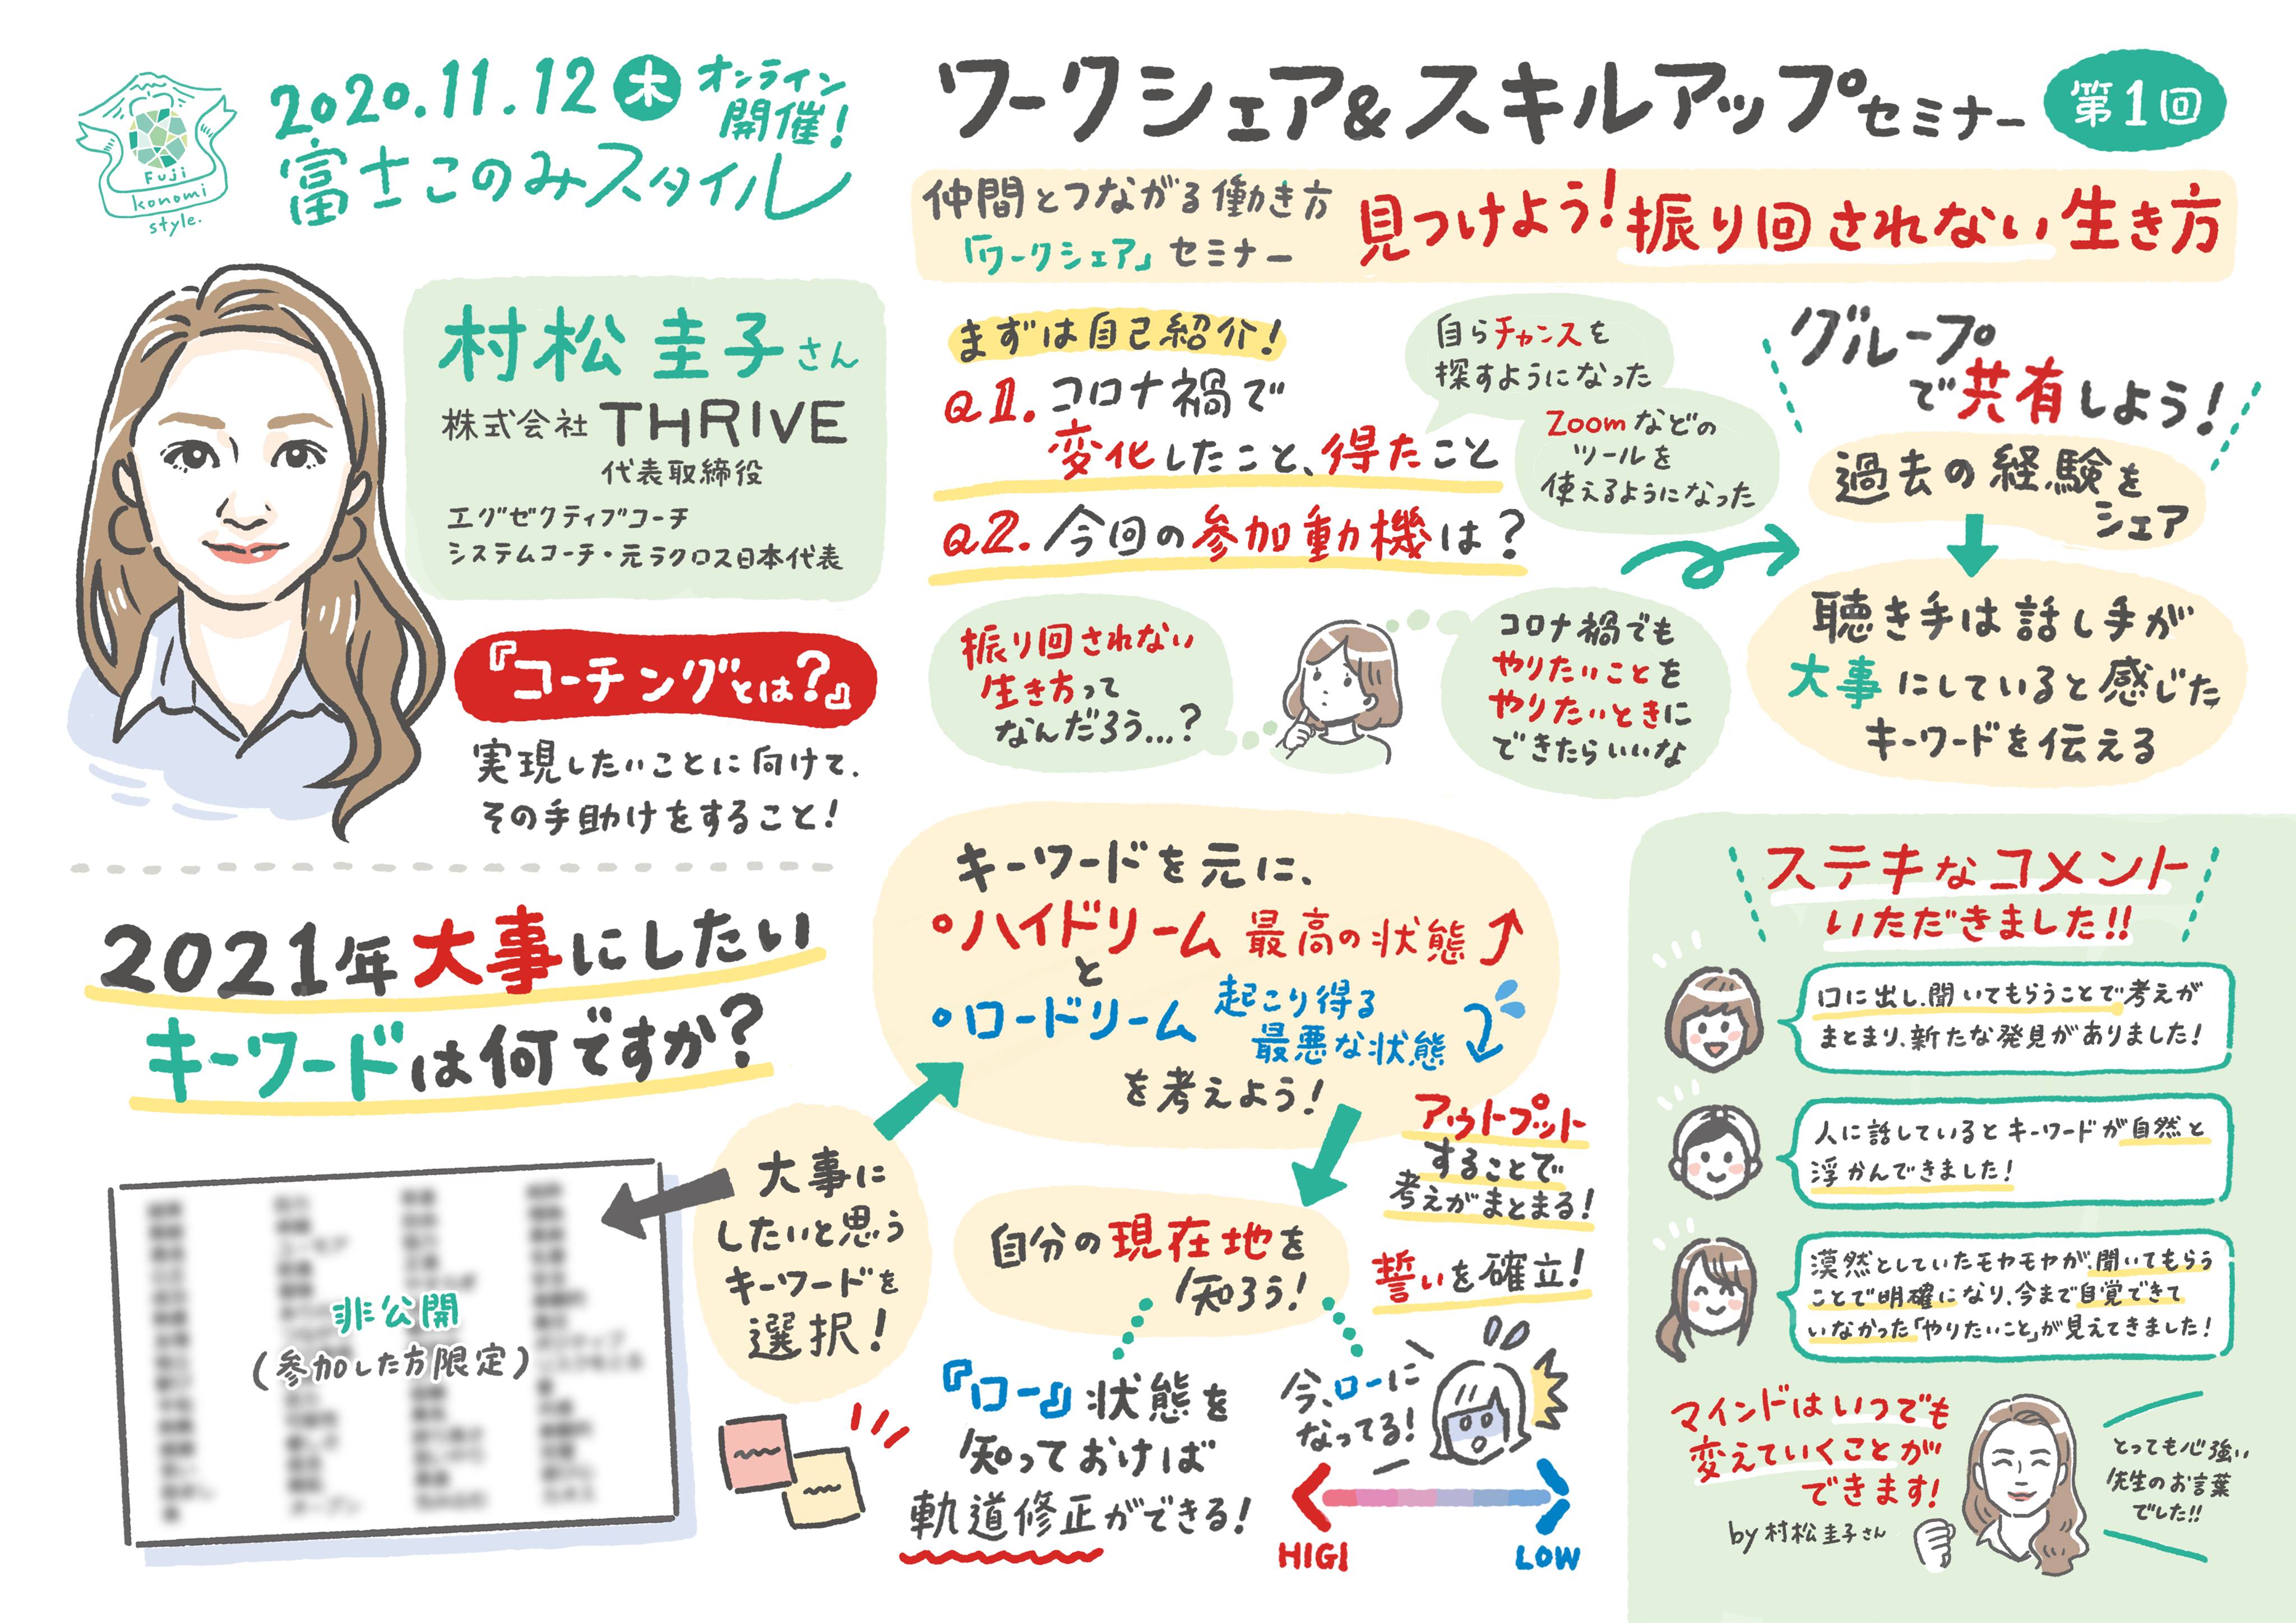 Fuji
konomi
style.
2020.11.12 木 オンライン
開催!
富士このみスタイル
ワークシェア&スキルアップセミナー 第1回
仲間とつながる働き方
「ワークシェア」セミナー
見つけよう!振り回されない生き方
村松 圭子さん
株式会社 THRIVE
代表取締役
エグゼクティブコーチ
システムコーチ・元ラクロス日本代表
『コーチングとは?』
実現したいことに向けて、
その手助けをすること!
まずは自己紹介!
Q1. コロナ禍で
変化したこと、得たこと
Q2. 今回の参加動機は?
自らチャンスを
探すようになった
Zoomなどの
ツールを
使えるようになった
振り回されない
生き方って
なんだろう…?
コロナ禍でも
やりたいことを
やりたいときに
できたらいいな
グループ
で共有しよう!
過去の経験を
シェア
聴き手は話し手が
大事にしていると感じた
キーワードを伝える
2021年大事にしたい
キーワードは何ですか?
非公開
(参加した方限定)
大事に
したいと思う
キーワードを
選択!
キーワードを元に、
ハイドリーム 最高の状態
と
ロードリーム 起こり得る
最悪な状態
を考えよう!
アウトプット
することで
考えがまとまる!
誓いを確立!
自分の現在地を
知ろう!
『ロー』状態を
知っておけば
軌道修正ができる!
今、ローに
なってる!
HIGI
LOW
ステキなコメント
いただきました!!
口に出し、聞いてもらうことで考えが
まとまり、新たな発見がありました!
人に話しているとキーワードが自然と
浮かんできました!
漠然としていたモヤモヤが、聞いてもらう
ことで明確になり、今まで自覚できて
いなかった「やりたいこと」が見えてきました!
マインドはいつでも
変えていくことが
できます!
by 村松圭子さん
とっても心強い
先生のお言葉
でした!!